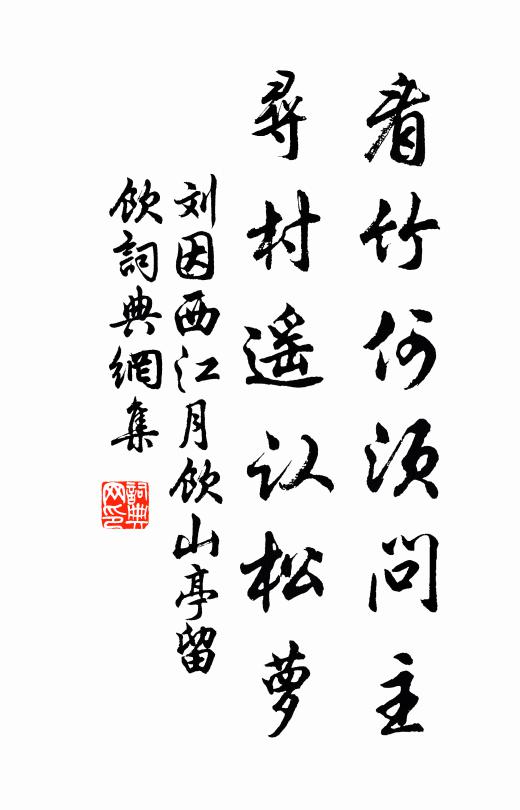 看竹何须问主
尋村遥认松萝
刘因西江月飲山亭留
飲詞典網集
詞典网印